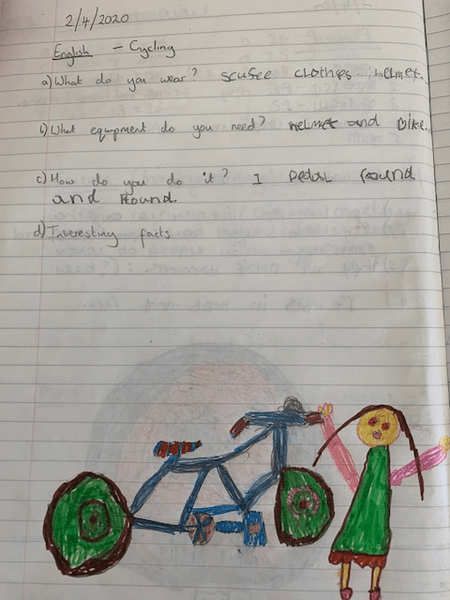 2/4/2020
English - Cycling
a) What do you wear? scuSee clothes helmet.
b) What equipment do you need? HELMET and Bike.
c) How do you do it? I Pedal round
and Round.
d) Interesting facts